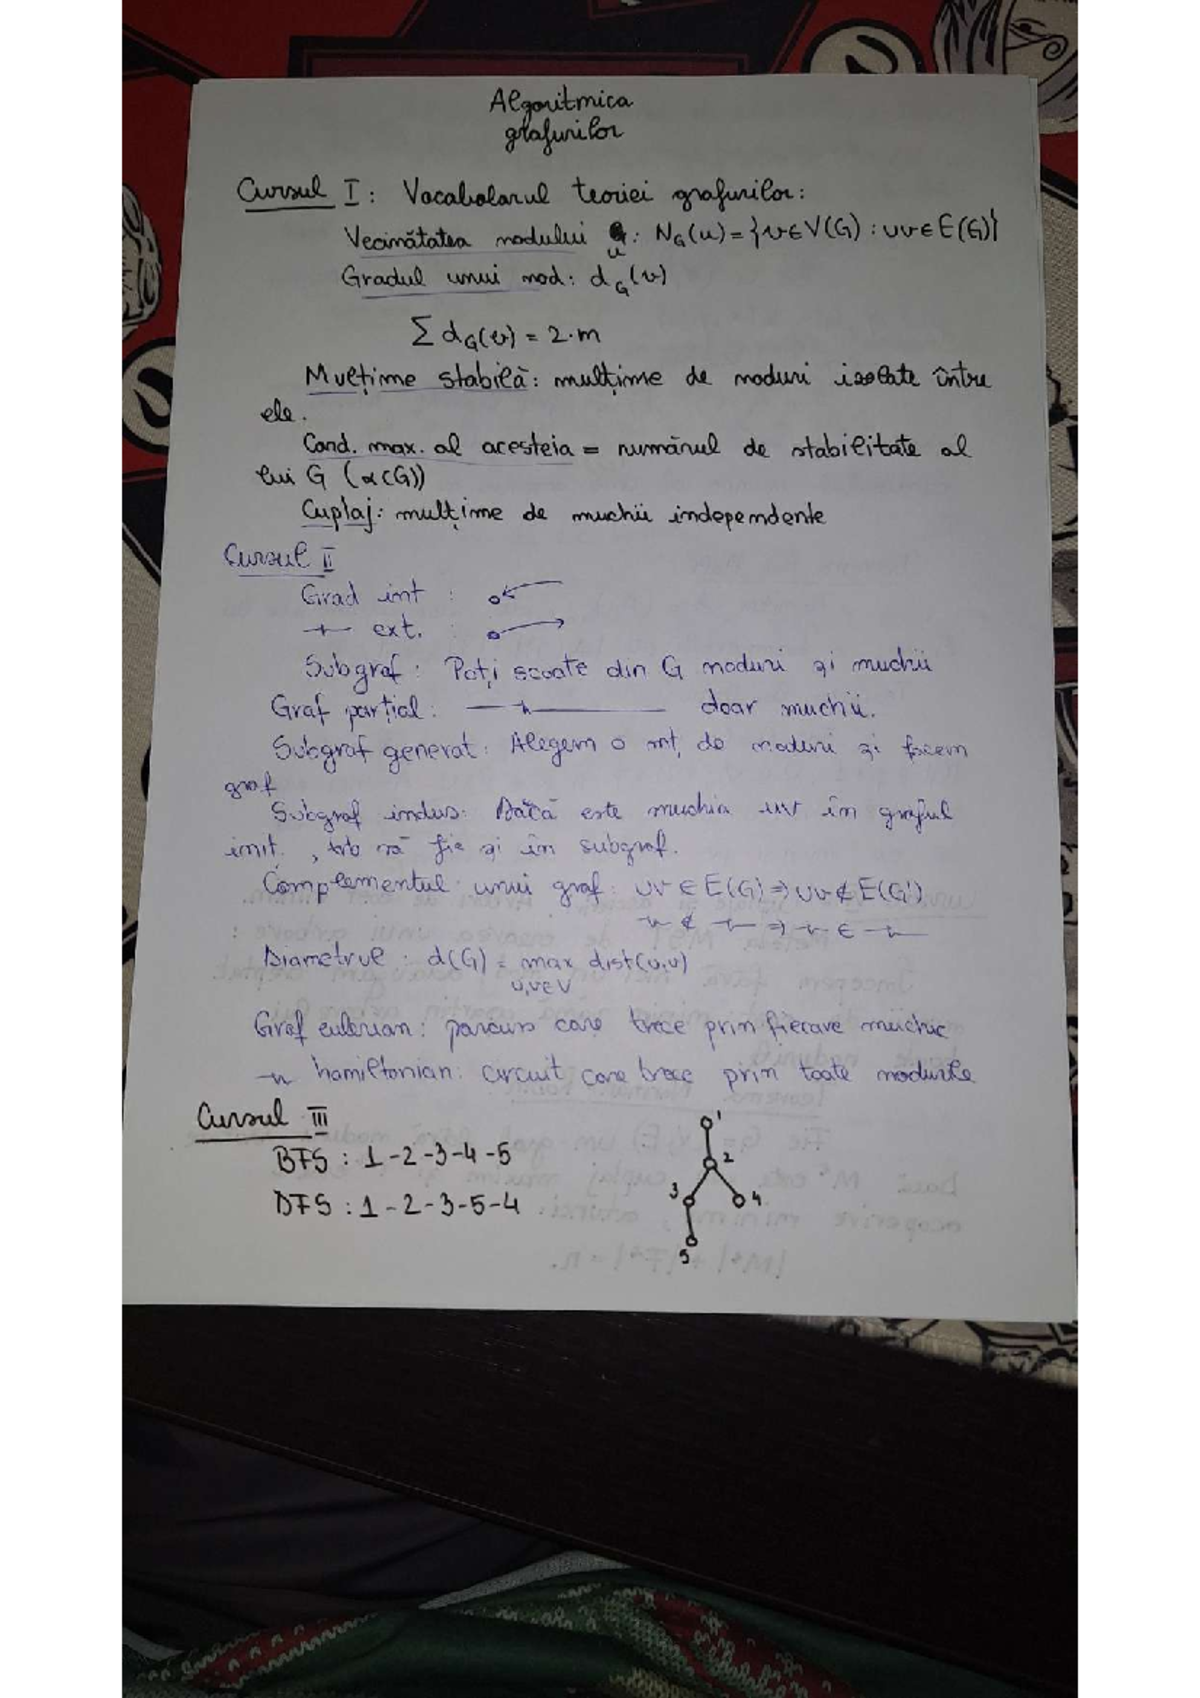 Algoritmica
grafurilor
Cursul I: Vocabolarul teoriei grafurilor:
Vecinătatea nodului u: N_G(u) = {v∈V(G) : uv∈E(G)}
Gradul unui nod: d_G(v)
Σ d_G(v) = 2·m
Mulțime stabilă: mulțime de noduri izolate între
ele.
Card. max. al acesteia = numărul de stabilitate al
lui G (α(G))
Cuplaj: mulțime de muchii independente
Cursul II
Grad int :
—"— ext. :
Subgraf : Poți scoate din G noduri și muchii
Graf parțial: —"— doar muchii.
Subgraf generat: Alegem o mț de noduri și facem
graf
Subgraf indus: Dacă este muchia uv în graful
init. , trb să fie și în subgraf.
Complementul unui graf: uv ∈ E(G) ⇒ uv ∉ E(G')
—"— ∉ —"— ⇒ —"— ∈ —"—
Diametrul : d(G) = max dist(u,v)
u,v∈V
Graf eulerian: parcurs care trece prin fiecare muchie
—"— hamiltonian: circuit care trece prin toate nodurile
Cursul III
BFS : 1-2-3-4-5
DFS : 1-2-3-5-4
1
2
3
4
5